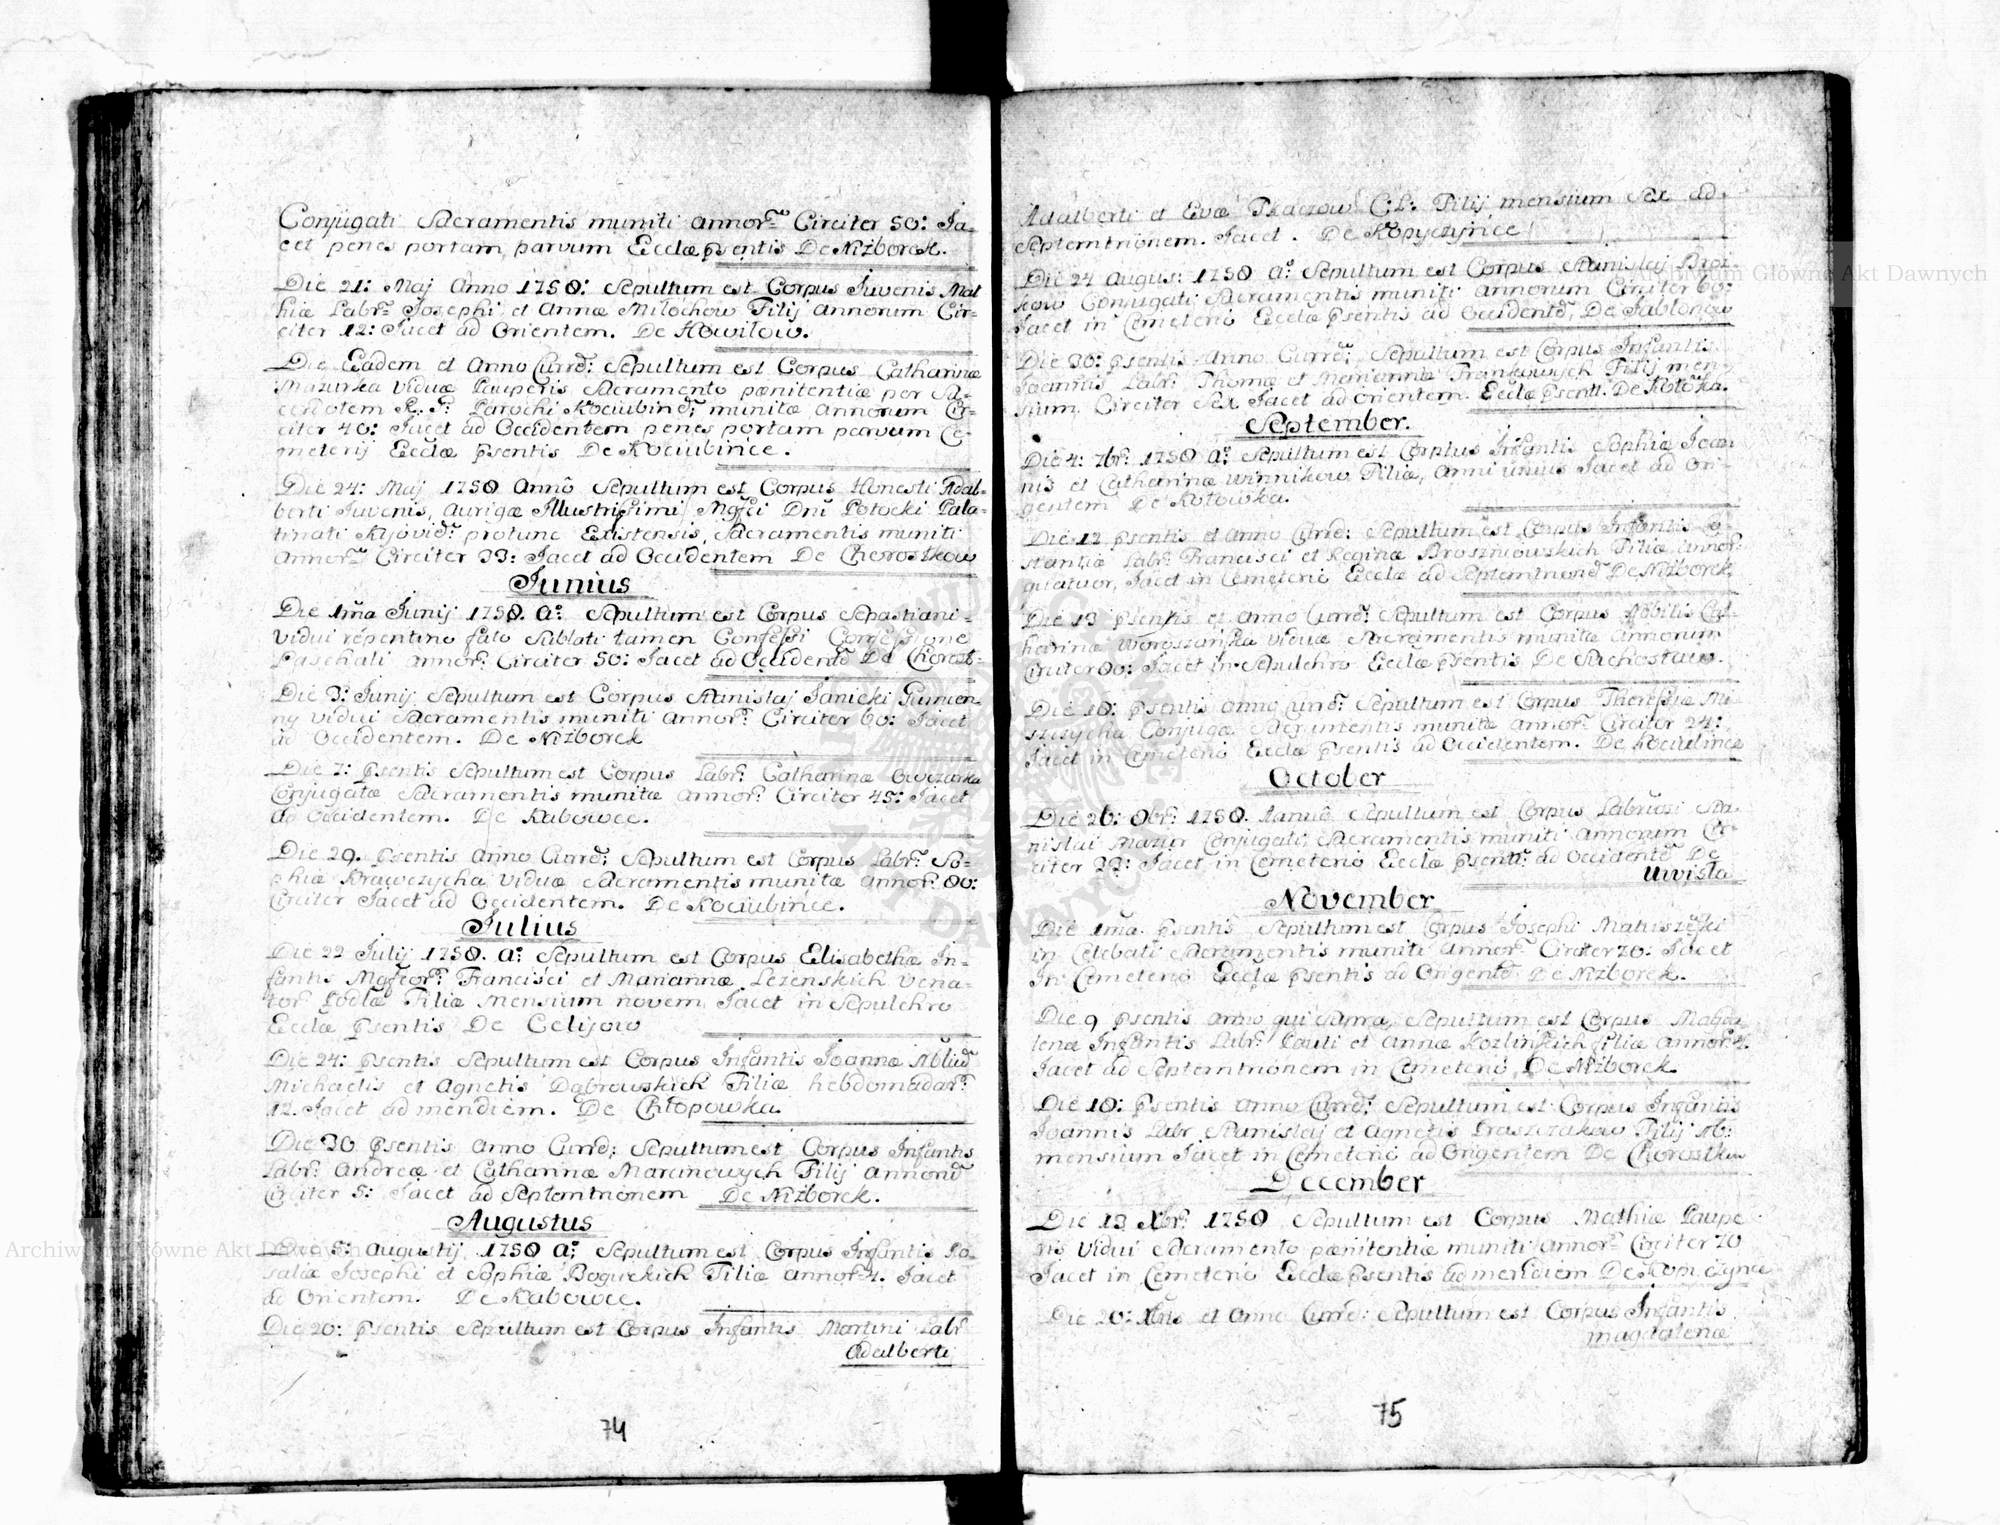 Conjugati Sacramentis muniti annor. Circiter 50: Ja-
cet penes portam parvum Eccłæ psentis De Niżborek.
Die 21: Maj Anno 1750: Sepultum est Corpus Juvenis Mat
hiæ Labr. Josephi et Annæ Miłochow Filij Annorum Cir-
citer 12: Jacet ad Orientem. De Howilow.
Die Eadem et Anno Curr: Sepultum est Corpus Catharinæ
Mazurka Viduæ Pauperis Sacramento pœnitentiæ per Sa-
cerdotem R. P. Parochi Kociubin: munitæ Annorum Cir-
citer 40: Jacet ad Occidentem penes portam parvum Ce-
meterij Eccłæ psentis De Kociubince.
Die 24: Maj 1750 Anno Sepultum est Corpus Honesti Adal-
berti Juvenis, Aurigæ Illustrissimi Mgfici Dni Potocki Pala-
tinati Kijovi: protunc Existensis, Sacramentis muniti
Annor. Circiter 33: Jacet ad Occidentem De Chorostkow
Junius
Die 1ma Junij 1750. Ao. Sepultum est Corpus Sebastiani
Vidui repentino fato Sublati tamen Confessi Confessione
Paschali Annor. Circiter 50: Jacet ad Occident De Chorost-
Die 3: Junij Sepultum est Corpus Stanislaj Janicki Gumien-
ny vidui Sacramentis muniti Annor. Circiter 60: Jacet
ad Occidentem. De Niżborek
Die 7: psentis Sepultum est Corpus Labr. Catharinæ Owczarka
Conjugatæ Sacramentis munitæ Annor. Circiter 45: Jacet
ad Occidentem. De Rabowce.
Die 29. psentis Anno Curr: Sepultum est Corpus Labr. So-
phiæ Krawczycha Viduæ Sacramentis munitæ Annor. 80:
Circiter Jacet ad Occidentem. De Kociubince.
Julius
Die 22 Julij 1750. Ao. Sepultum est Corpus Elisabethæ In-
fantis Mgfcor. Francisci et Mariannæ Lezenskich Vena-
tor Podlæ Filiæ Mensium novem Jacet in Sepulchro
Eccłæ psentis De Celijow
Die 24: psentis Sepultum est Corpus Infantis Joannæ
Michaelis et Agnetis Dąbrowskich Filiæ hebdomadar.
12. Jacet ad meridiem. De Chłopowka.
Die 30 psentis Anno Curr: Sepultum est Corpus Infantis
Labr. Andreæ et Catharinæ Marcinowych Filij Annor
Circiter 5: Jacet ad Septemtrionem De Niżborek.
Augustus
Die 5: Augustij 1750 Ao. Sepultum est Corpus Infantis Ro-
saliæ Josephi et Sophiæ Boguckich Filiæ Annor 4. Jacet
ad Orientem. De Rabowce.
Die 20: psentis Sepultum est Corpus Infantis Martini Labr
Adalberti
74
Adalberti et Evæ Filij mensium Sex ad
Septemtrionem. Jacet. De Kopyczyńce
Die 24 Augus: 1750 Ao. Sepultum est Corpus Stanislaj
kow Conjugati Sacramentis muniti Annorum Circiter 60:
Jacet in Cemeterio Eccłæ psentis ad Occident, De Jabłonow
Die 30: psentis Anno Curr: Sepultum est Corpus Infantis
Joannis Labr. Thomæ et Mariannæ Frankowych Filij men-
sium Circiter Sex Jacet ad Orientem Eccłæ psent. De Kotowka.
September.
Die 4: 7br. 1750 Ao. Sepultum est Corptus Infantis Sophiæ Joan
nis et Catharinæ Winnikow Filiæ, Anni unius Jacet ad Ori-
gentem De Kotowka.
Die 12 psentis et Anno Curr: Sepultum est Corpus Infantis Co-
stantiæ Labr. Francisci et Reginæ Broszniowskich Filiæ Annor.
quatuor, Jacet in Cemeterio Eccłæ ad Septemtrion De Niżborek.
Die 13 psentis et Anno Curr: Sepultum est Corpus Nobilis Cat-
harinæ Woroszańska Viduæ Sacramentis munitæ Annorum
Circiter 80: Jacet in Sepulchro Eccłæ psentis De Suchostaw.
Die 18: psentis Anno Curr: Sepultum est Corpus Theressiæ Mi-
szczycha Conjugæ Sacramentis munitæ Annor. Circiter 24:
Jacet in Cemeterio Eccłæ psentis ad Occidentem. De Kociubince
October
Die 26: 8br. 1750. Sepultum est Corpus Laboriosi Sta-
nislai Mazur Conjugati, Sacramentis muniti Annorum Cir-
citer 33: Jacet in Cemeterio Eccłæ psent. ad Occident De
Uwisla
November
Die 1ma psentis Sepultum est Corpus Josephi Matuszewski
in Celebati Sacramentis muniti Annor. Circiter 70: Jacet
In Cemeterio Eccłæ psentis ad Origent. De Niżborek.
Die 9 psentis Anno qui Supra, Sepultum est Corpus Magda-
lenæ Infantis Labr. Pauli et Annæ Kozlinskich filiæ Annor 4.
Jacet ad Septemtrionem in Cemeterio, De Niżborek.
Die 18: psentis Anno Curr: Sepultum est Corpus Infantis
Joannis Labr Stanislaj et Agnetis Praszczakow Filij
mensium Jacet in Cemeterio ad Origentem De Chorostkow
December
Die 13 Xbr. 1750 Sepultum est Corpus Mathiæ Paupe-
ris Vidui Sacramento pœnitentiæ muniti Annor. Circiter 70
Jacet in Cemeterio Eccłæ psentis ad meridiem De Kopiczynce
Die 20: Xbris et Anno Curr: Sepultum est Corpus Infantis
Magdalenæ
75
Archiwum Główne Akt Dawnych
Archiwum Główne Akt Dawnych